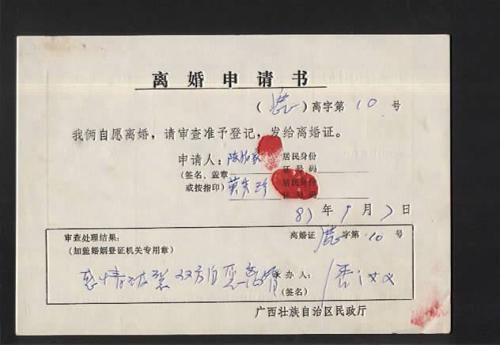 离婚申请书
( ) 离字第 10 号
我俩自愿离婚，请审查准予登记，发给离婚证。
申请人： 居民身份
(签名、盖章 证号码
或按指印) 居民身份
证号码
年 月 日
审查处理结果： 离婚证 字第 10 号
(加盖婚姻登记机关专用章)
感情破裂 双方自愿离婚 承办人：
(签名)
广西壮族自治区民政厅